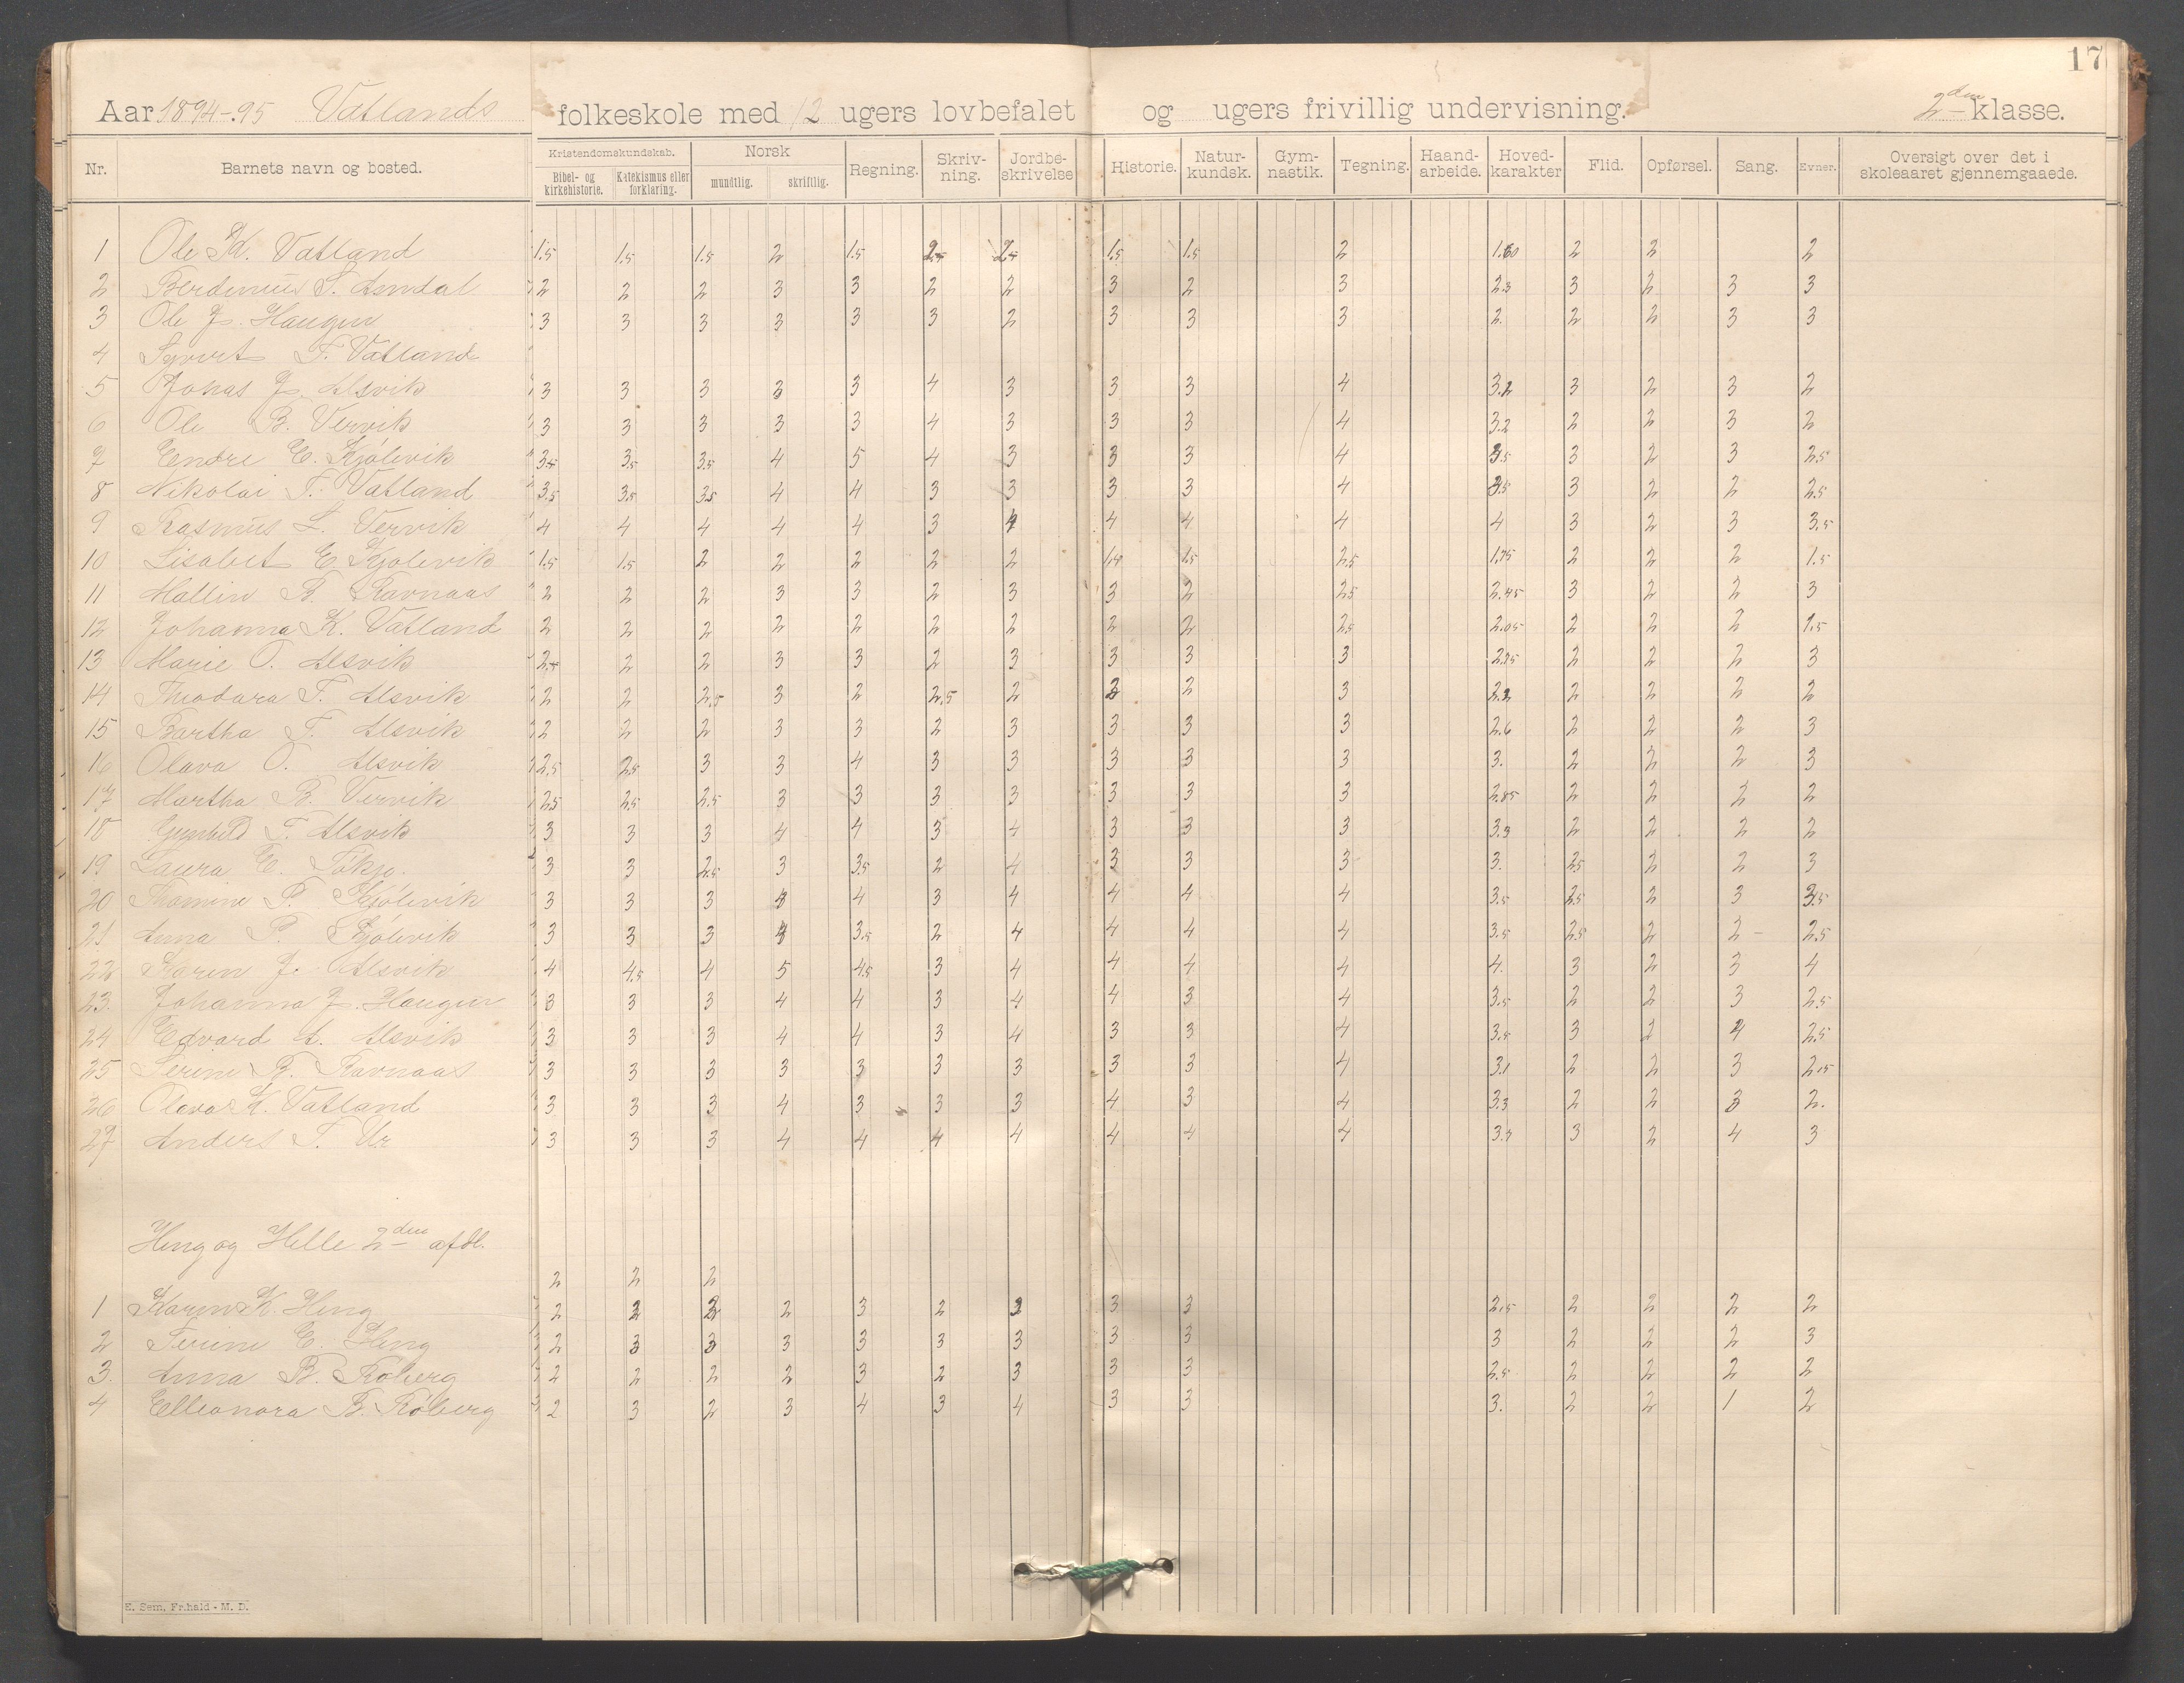 17
Aar 1894-95 Vatlands folkeskole med 12 ugers lovbefalet og ugers frivillig undervisning. 2den klasse.
Nr. Barnets navn og bosted. Kristendomskundskab. Bibel- og kirkehistorie. Katekismus eller forklaring. Norsk mundtlig. skriftlig. Regning. Skriv-ning. Jordbe-skrivelse Historie. Natur-kundsk. Gym-nastik. Tegning. Haand-arbeide. Hoved-karakter Flid. Opførsel. Sang. Evner. Oversigt over det i skoleaaret gjennemgaaede.
1 Ole K. Vatland 1.5 1.5 1.5 2 1.5 1.5 1.5 2 1.60 2 2 2
2 S. Amdal 2 2 2 3 3 2 2 3 2 3 2.3 3 2 3 3
3 Ole J. Haugen 3 3 3 3 3 3 2 3 3 3 2. 2 2 3 3
4 Syvert T. Vatland
5 Jonas J. Alsvik 3 3 3 3 3 4 3 3 3 4 3.2 3 2 3 2
6 Ole B. Vervik 3 3 3 3 3 4 3 3 3 4 3.2 2 2 3 2
7 Endre E. Kjölevik 3.5 3.5 3.5 4 5 4 3 3 3 4 3.5 3 2 3 2.5
8 Nikolai T. Vatland 3.5 3.5 3.5 4 4 3 3 3 3 4 3.5 3 2 2 2.5
9 Rasmus L. Vervik 4 4 4 4 4 3 4 4 4 4 4 3 2 3 3.5
10 Lisabet E. Kjölevik 1.5 1.5 2 2 2 2 2 1.5 1.5 2.5 1.75 2 2 2 1.5
11 Mallin B. Ravnaas 2 2 2 3 3 2 3 3 2 2.5 2.45 3 2 2 3
12 Johanna K. Vatland 2 2 2 2 2 2 2 2 2 2.5 2.05 2 2 2 1.5
13 Marie O. Alsvik 2.5 2 2 3 3 2 3 3 3 3 2.75 2 2 2 3
14 Theodora T. Alsvik 2 2 2.5 3 2 2.5 2 2 2 3 2.2 2 2 2 2
15 Bertha T. Alsvik 2 2 2 3 3 2 3 3 3 3 2.6 2 2 2 3
16 Olava O. Alsvik 2.5 2.5 3 3 4 3 3 3 3 3 3. 2 2 2 3
17 Martha B. Vervik 2.5 2.5 2.5 3 3 3 3 3 3 3 2.85 2 2 2 2
18 Gunhild T. Alsvik 3 3 3 4 4 3 4 3 3 3 3.3 2 2 2 2
19 Laura E. Tökje. 3 3 2.5 3 3.5 2 4 3 3 3 3. 2.5 2 2 3
20 Thomine P. Kjölevik 3 3 3 4 3 4 4 4 4 3.5 2.5 2 3 3.5
21 Anna P. Kjölevik 3 3 3 3.5 2 4 4 4 4 3.5 2.5 2 2 2.5
22 Karen J. Alsvik 4 4.5 4 5 4.5 3 4 4 4 4 4. 3 2 3 4
23. Johanna J. Haugen 3 3 3 4 4 3 4 4 3 4 3.5 2 2 3 2.5
24 Edvard A. Alsvik 3 3 3 4 4 3 4 3 3 4 3.5 3 2 4 2.5
25 Serine B. Ravnaas 3 3 3 3 3 3 3 3 3 4 3.1 2 2 3 2.5
26 Olava K. Vatland 3 3 3 4 3 3 3 4 3 4 3.3 2 2 3 2.
27 Anders T. Ur 3 3 3 4 4 4 4 4 4 4 3.7 3 2 4 3
Heng og Helle 2den afdl.
2 2 2
1 Karen K. Heng 2 2 2 2 3 2 3 3 3 2.15 2 2 2 2
2 Serine E. Heng 2 3 3 3 3 3 3 3 3 3 2 2 2 3
3. Anna B. Röberg 2 2 2 2 3 2 3 3 3 2.5 2 2 2 2
4 Elleonora B. Röberg 2 3 2 3 4 3 4 3 3 3. 2 2 1 2
E. Sem, Fr.hald - M. D.